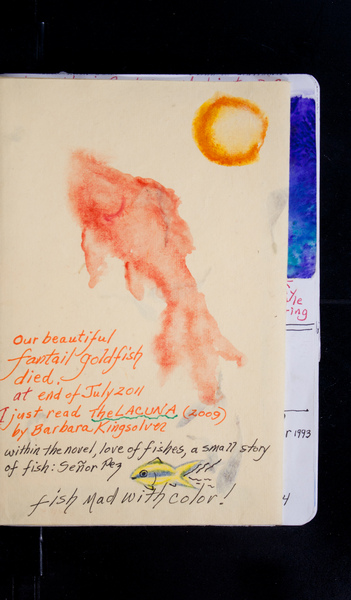 our beautiful
fantail goldfish
died.
at end of July 2011
I just read The LACUNA (2009)
by Barbara Kingsolver
within the novel, love of fishes, a small story
of fish: Señor Pez
fish mad with color!
yle
-ing
r 1993
4